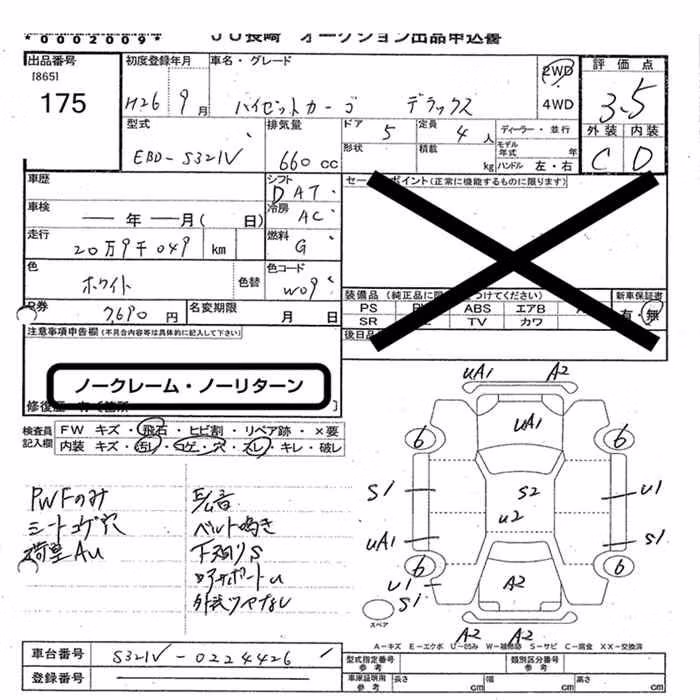 *0002009*
JU長崎 オークション出品申込書
出品番号
[865]
175
初度登録年月
H26 9月
車名・グレード
ハイゼットカーゴ デラックス
2WD
4WD
評価点
3.5
外装 内装
C D
型式
EBD-S321V
排気量
660cc
ドア 5
定員 4人
形状
積載 kg
ディーラー・並行
モデル年式 年
ハンドル 左・右
車歴
シフト
DAT
セールスポイント(正常に機能するものに限ります)
車検
年 月( 日)
冷房
AC
走行
20万9千049 km
燃料
G
色
ホワイト
色替
色コード
W09
装備品(純正品に
つけてください)
新車保証書
有・無
PS
ABS エアB
SR
TV カワ
後日品
R券
7,690円
名変期限
月 日
注意事項申告欄(不具合内容等は具体的に記入して下さい)
ノークレーム・ノーリターン
修復歴 有(箇所
検査員記入欄
FW キズ・飛石・ヒビ割・リペア跡・×要
内装 キズ・汚レ・コゲ・穴・スレ・キレ・破レ
PWFのみ
シートコゲ穴
荷室AU
ベルト鳴き
下廻りS
コアサポートU
外装ツヤなし
UA1 A2
UA1
6 6
S1 S2 U1
U2
UA1 S1
6 6
U1
S1
A2
A2 A2
スペア
A-キズ E-エクボ U-凹み W-補修跡 S-サビ C-腐食 XX-交換済
車台番号
S321V-0224426
登録番号
型式指定番号
参考
類別区分番号
参考
車庫証明用
参考
長さ cm 幅 cm 高さ cm